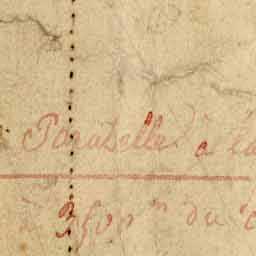 Parabelle à la
à 3500 m du